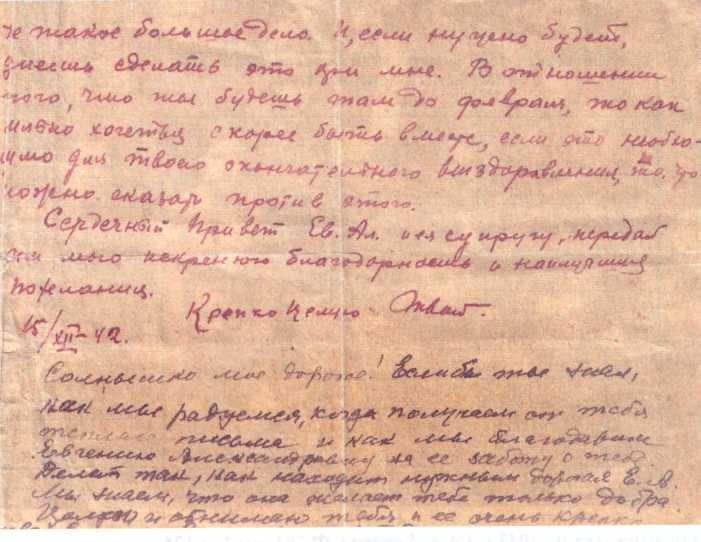 не такое большое дело. И, если нужно будет,
сделать это при мне. В отношении
того, что ты будешь там до февраля, то как
хочется скорее быть вместе, если это необхо-
димо для твоего окончательного выздоровления, то что
можно сказать против этого.
Сердечный привет Ев. Ал. и ея супругу, передай
им мою искренюю благодарность и наилучшия
пожелания.
Крепко целую. Твой.
15/XII-42.
Солнышко мое дорогое! Если бы ты знал,
как мы радуемся, когда получаем от тебя
теплые письма и как мы благодарим
Евгению Александровну за ее заботу о тебе.
Делай так, как находит нужным дорогая Е. А.
Мы знаем, что она желает тебе только добра.
Целую и обнимаю тебя и ее очень крепко